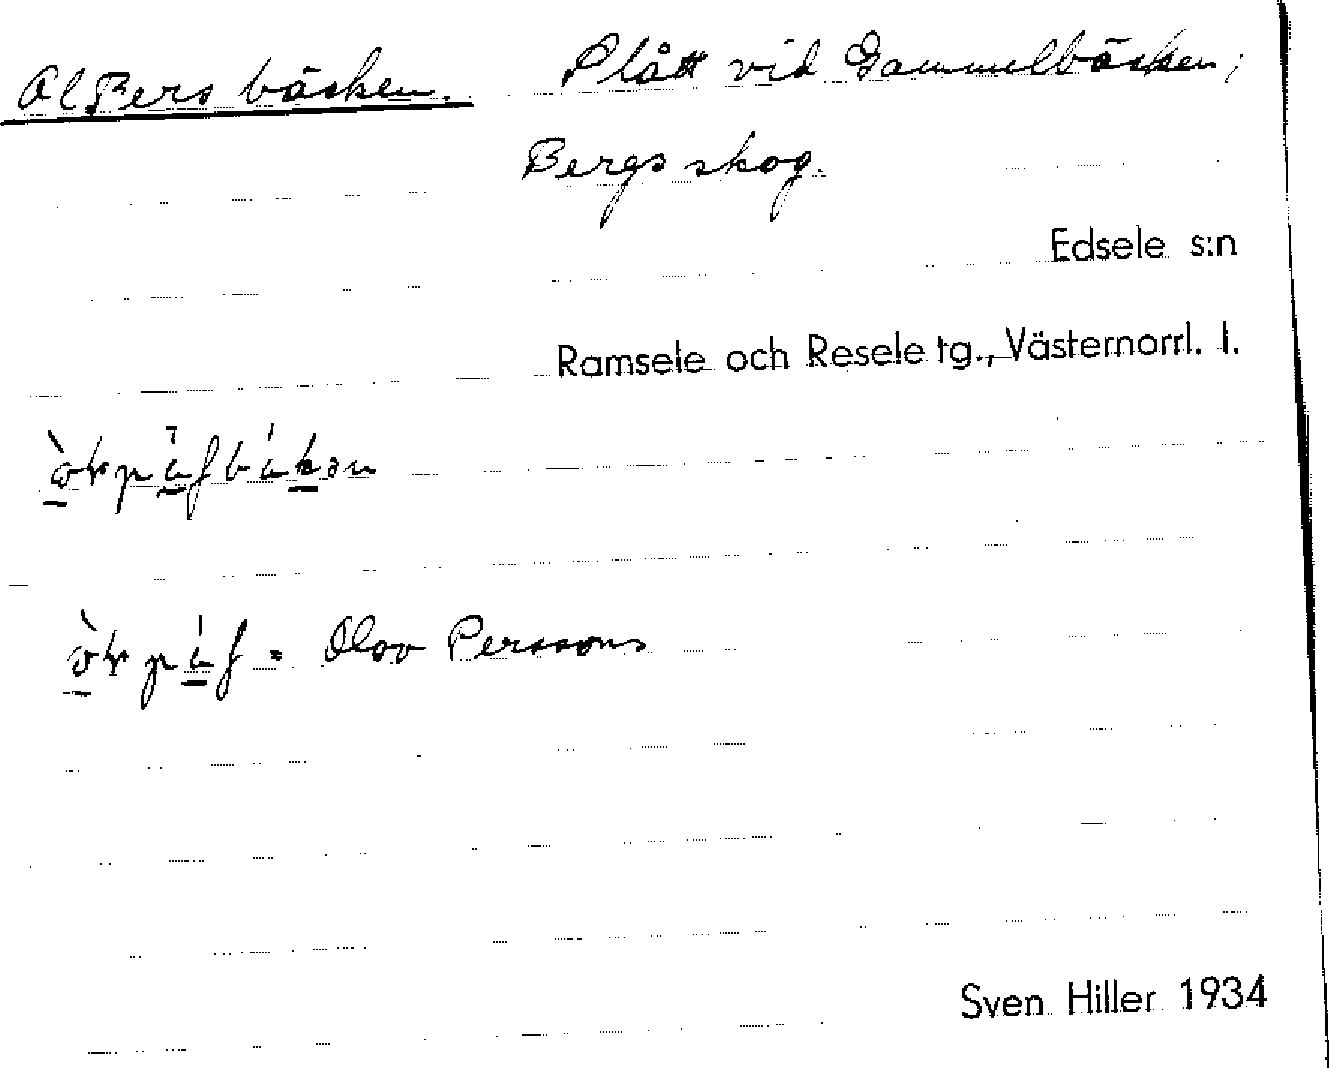 Ol Pers bäcken. Plått vid Gammelbäcken;
Bergs skog.
Edsele s:n
Ramsele och Resele tg., Västernorrl. l.
= Olov Perssons
Sven Hiller 1934